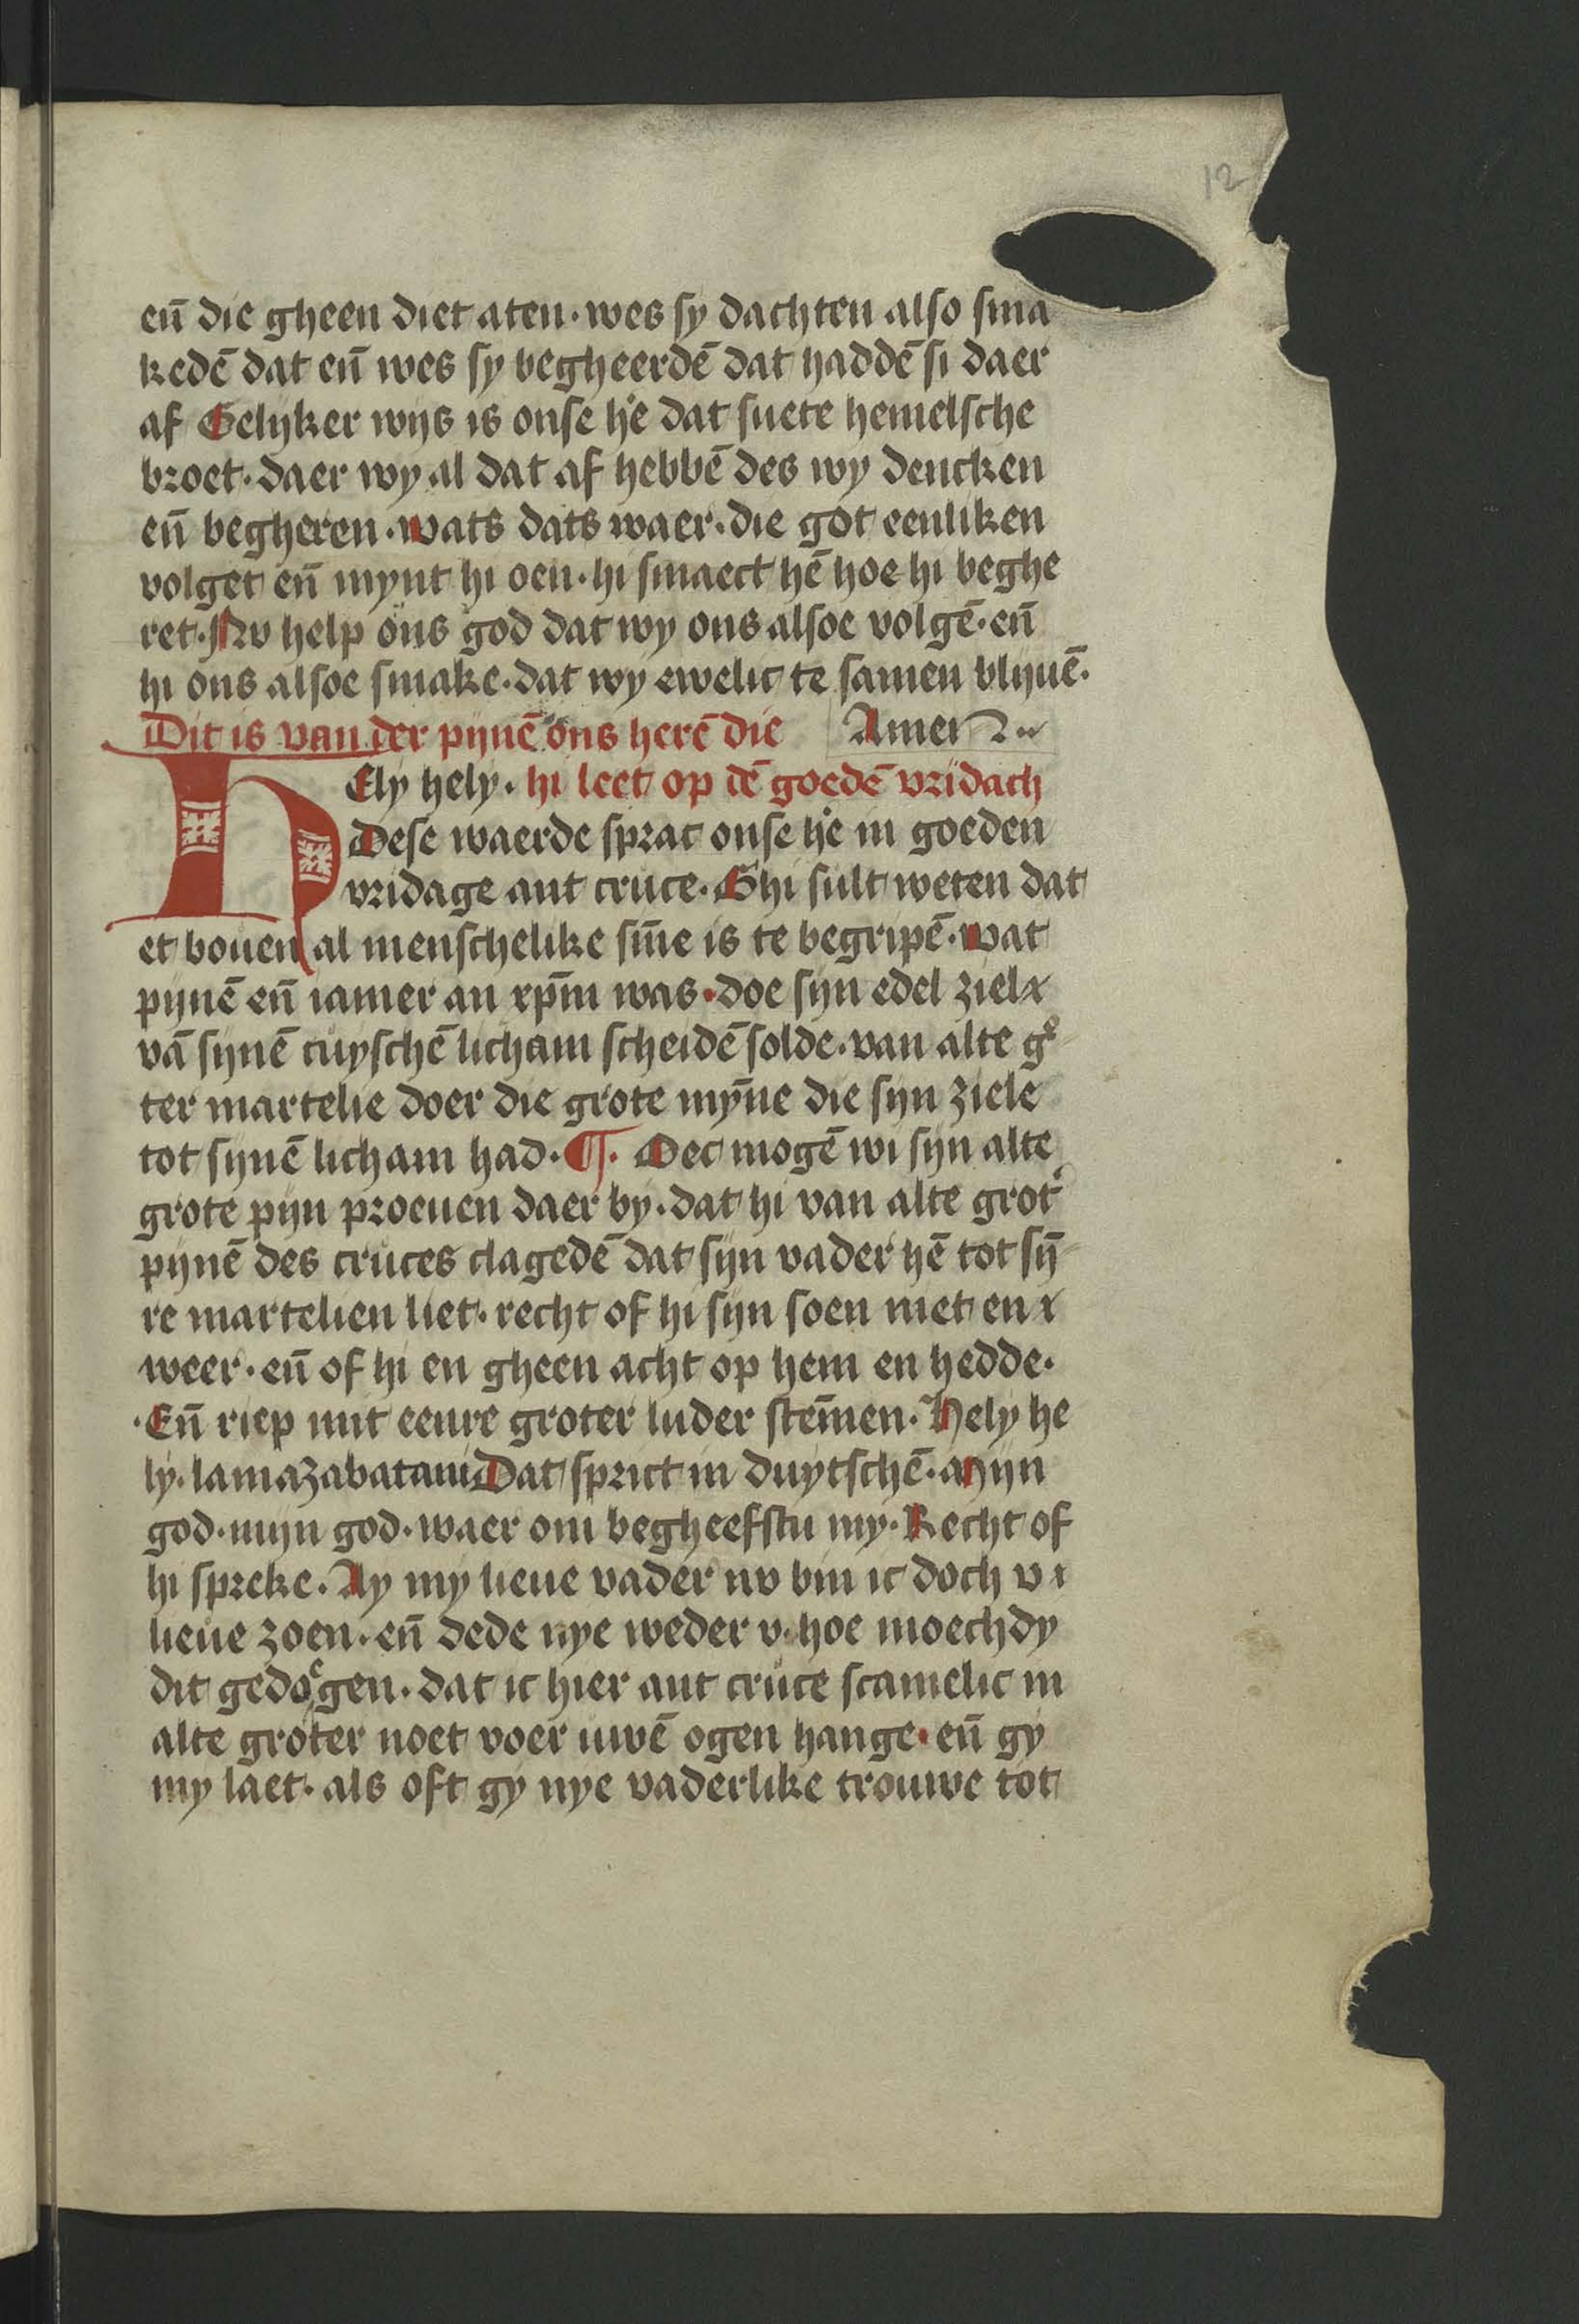 12
eñ die gheen diet aten · wes sy dachten also sma
kedē dat eñ wes sy begheerdē dat haddē si daer
af Gelyker wijs is onse h'e dat suete hemelsche
broet · daer wy al dat af hebbē des wy dencken
eñ begheren · wats dats waer · die got eenliken
volget eñ mynt hi oen · hi smaect hē hoe hi beghe
ret · Nv help ons god dat wy ons alsoe volgē · eñ
hi ons alsoe smake · dat wy ewelic te samen blijuē ·
Dit is van der pijnē ons herē die Amen
HEly hely · hi leet op dē goedē vridach
Dese waerde sprac onse h'e in goeden
vridage ant cruce · Ghi sult weten dat
et bouen al menschelike siñe is te begripē · wat
pijnē eñ iamer an xp̄m was · doe sijn edel ziel
vā sijnē cuyschē licham scheidē solde · van alte gͦ
ter martelie doer die grote mȳne die sijn ziele
tot sijnē licham had · ¶ · Oec mogē wi sijn alte
grote pijn proeuen daer by · dat hi van alte grot'
pijnē des cruces clagedē dat sijn vader hē tot sij̄
re martelien liet · recht of hi sijn soen niet en
weer · eñ of hi en gheen acht op hem en hedde ·
· Eñ riep mit eenre groter luder stēmen · Hely he
ly · lamazabatani Dat sprict in duytschē · Mijn
god · mijn god · waer om begheefstu my · Recht of
hi spreke · Ay my lieue vader nv bin ic doch v
lieue zoen · eñ dede nye weder v · hoe moechdy
dit gedoͤgen · dat ic hier ant cruce scamelic in
alte groter noet voer uwē ogen hange · eñ gy
my laet · als oft gy nye vaderlike trouwe tot